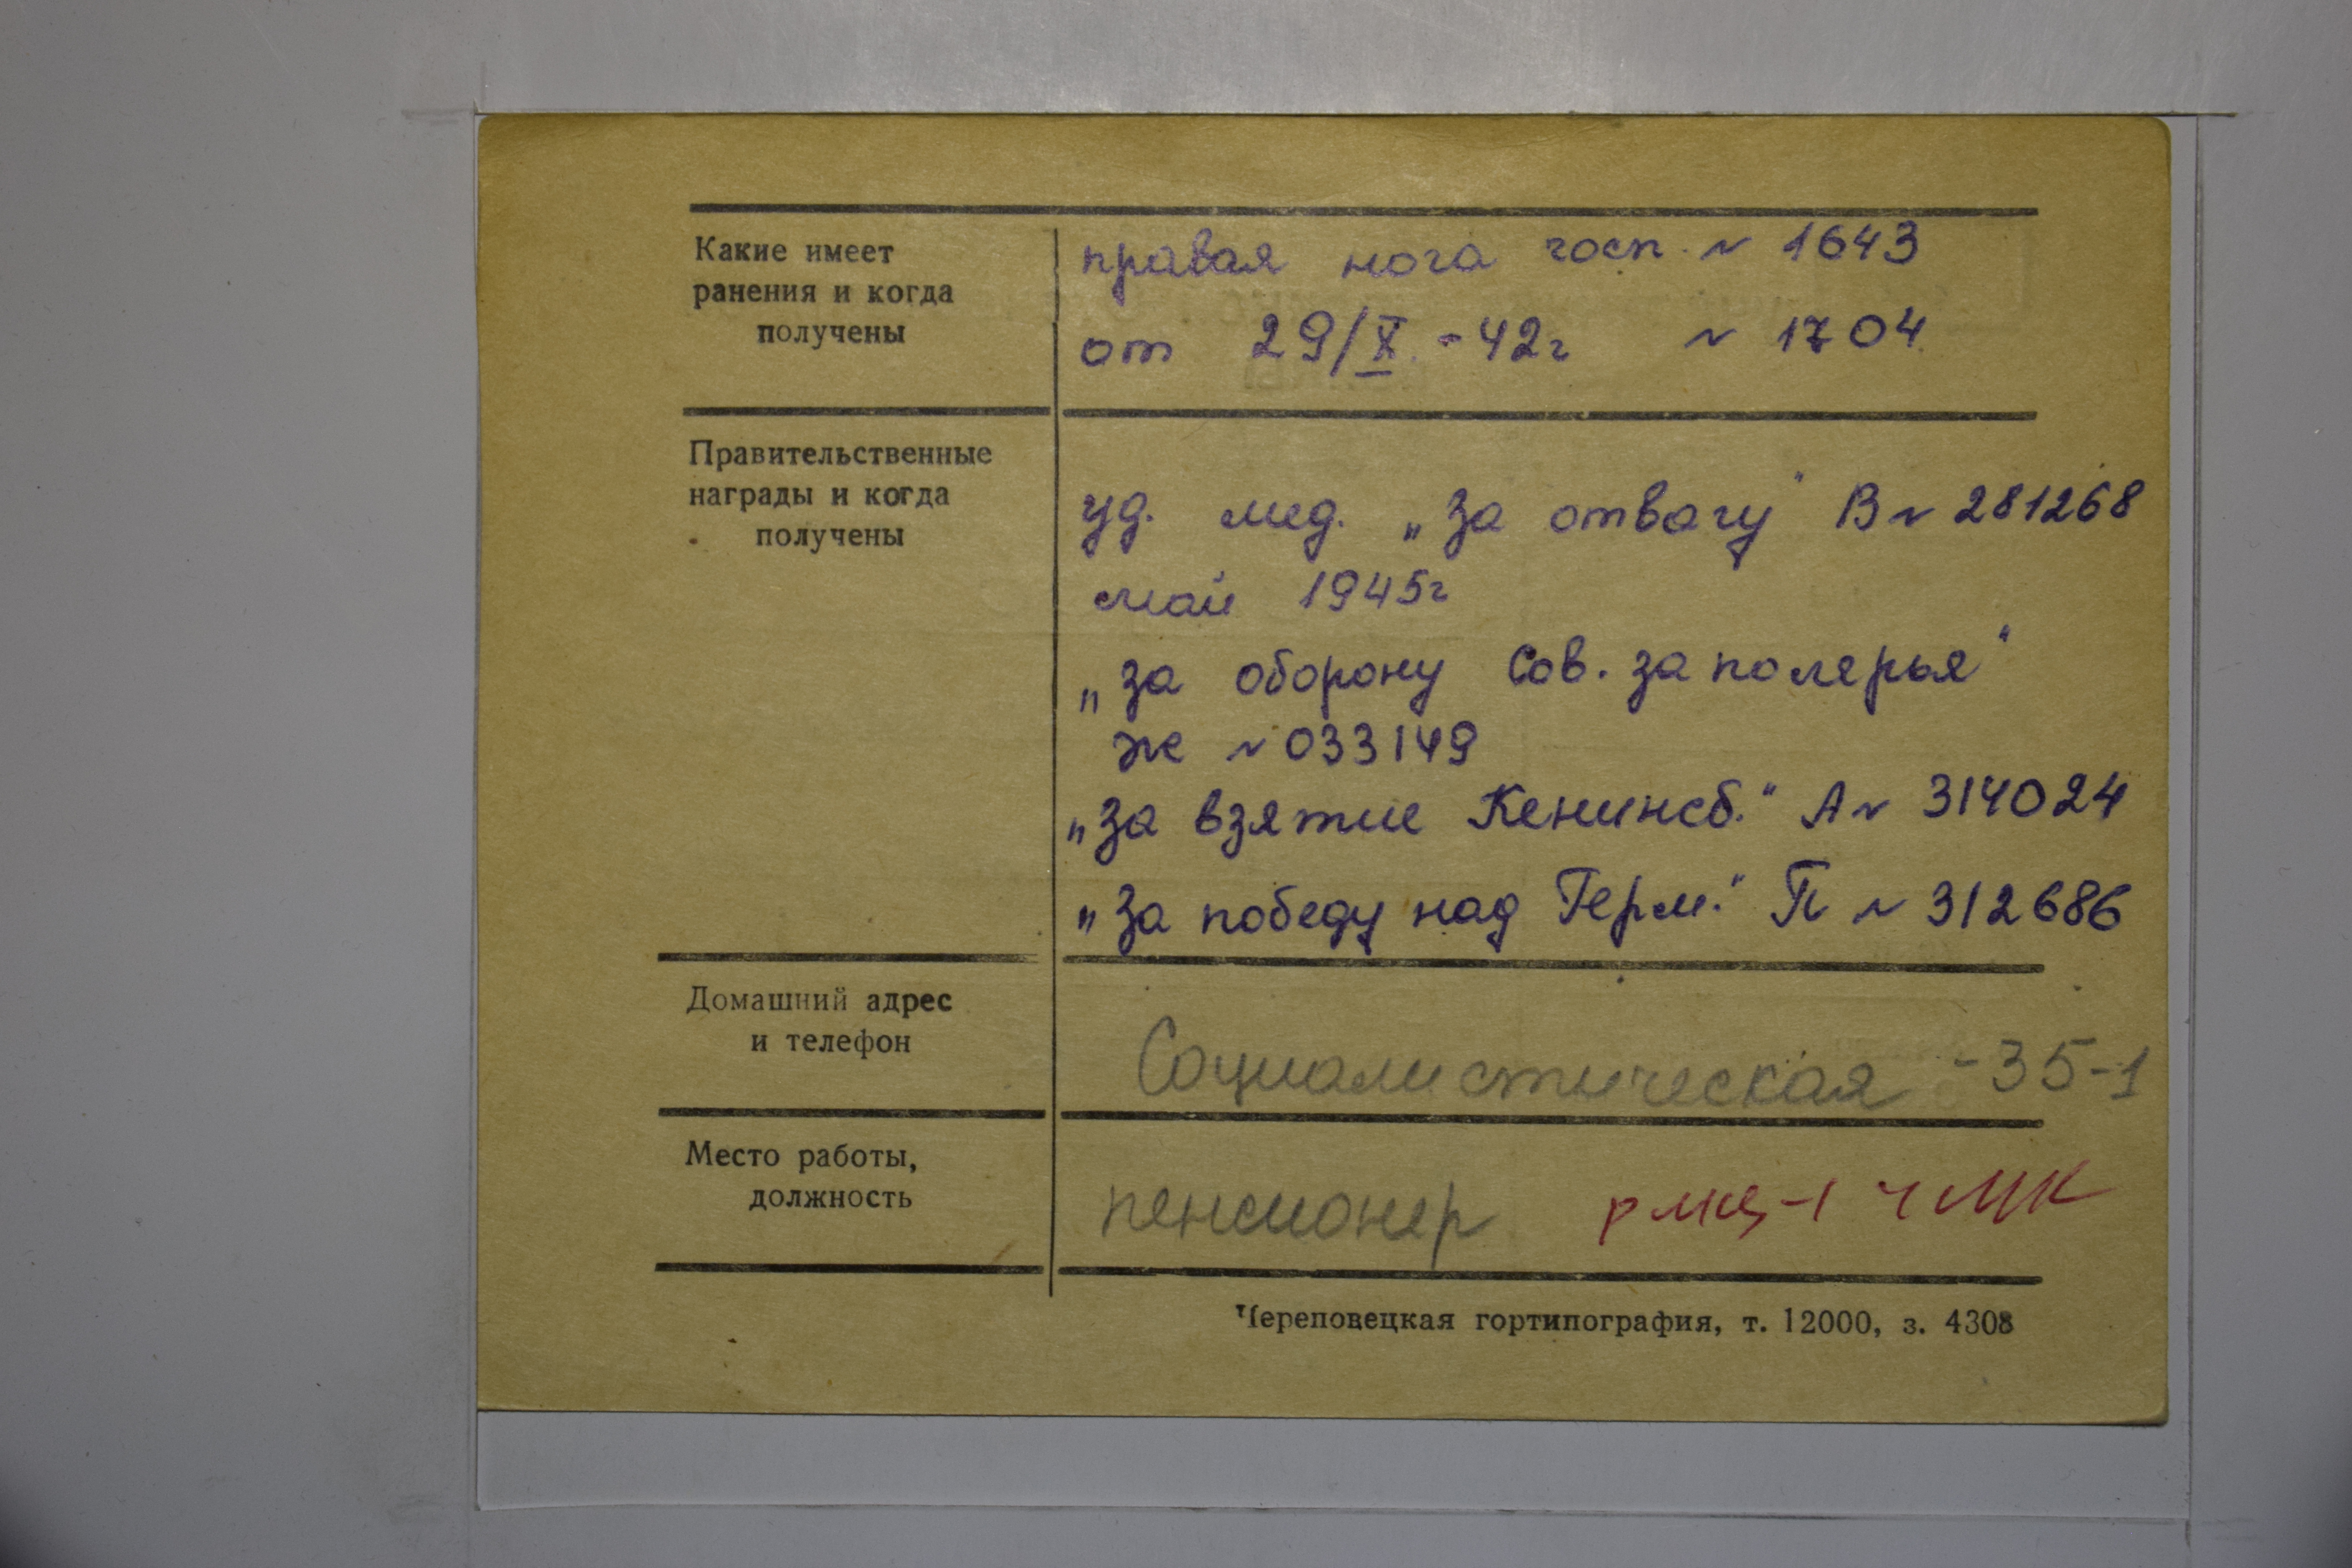 Какие имеет
ранения и когда
получены
правая нога госп. № 1643
от 29/X -42г № 1704
Правительственные
награды и когда
получены
уд. мед. „За отвагу" В № 281268
май 1945г
„за оборону Сов. заполерья"
Ж № 033149
„За взятие Кенинсб." А № 314024
„За победу над Герм." П № 312686
Домашний адрес
и телефон
Социалистическая - 35-1
Место работы,
должность
пенсионер РМЦ-1 ЧМК
Череповецкая гортипография, т. 12000, з. 4308